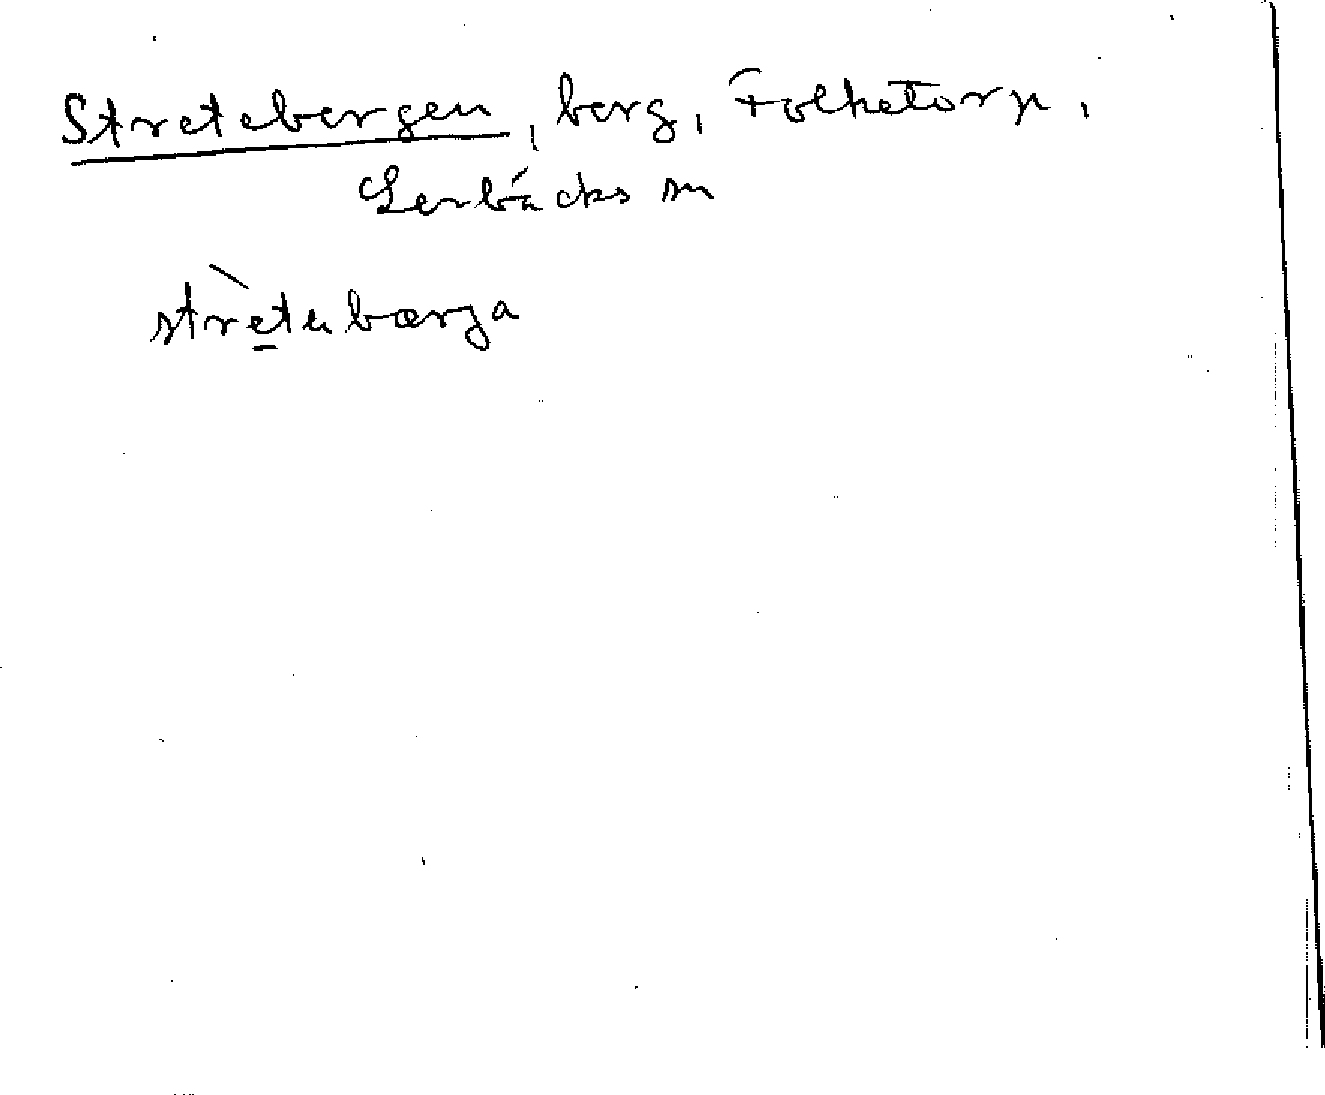 Stretebergen, berg, Folketorp,
Lerbäcks sn
strètebærja